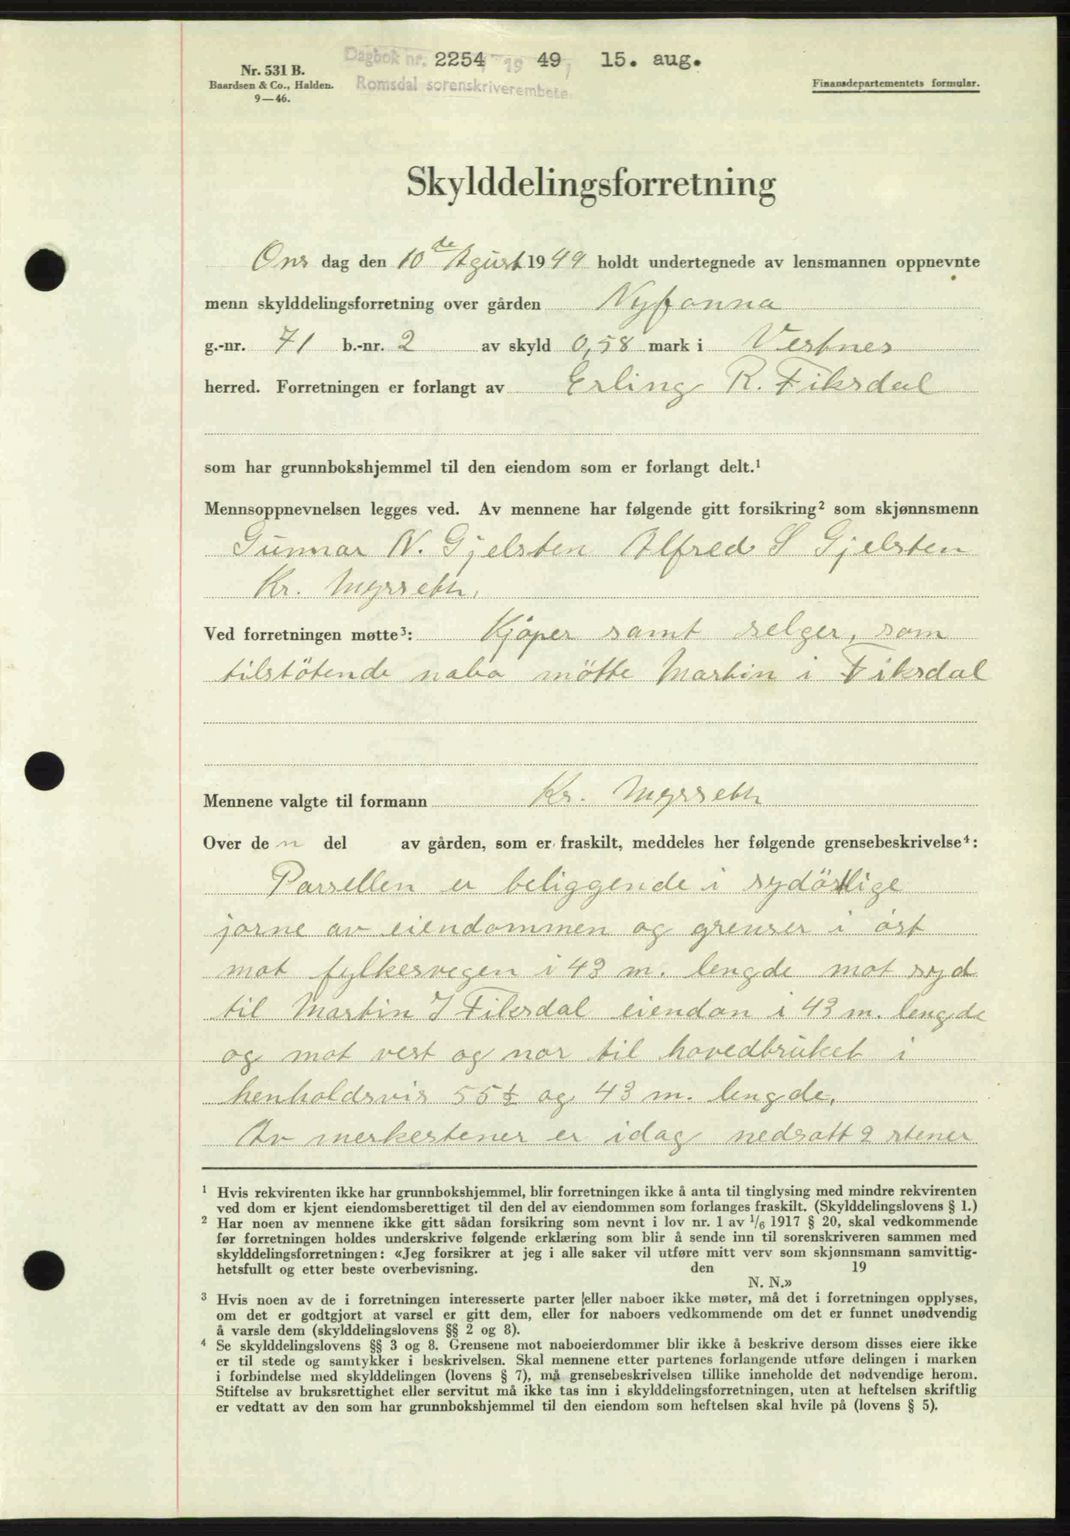 Nr. 531 B.
Baardsen & Co., Halden.
9—46.
Dagbok nr. 2254 19 49 15. aug.
Romsdal sorenskriverembete
Finansdepartementets formular.
Skylddelingsforretning
Ons dag den 10de Agust 1949 holdt undertegnede av lensmannen oppnevnte
menn skylddelingsforretning over gården Nyfonna
g.-nr. 71 b.-nr. 2 av skyld 0,58 mark i Vestnes
herred. Forretningen er forlangt av Erling R. Fiksdal
som har grunnbokshjemmel til den eiendom som er forlangt delt.¹
Mennsoppnevnelsen legges ved. Av mennene har følgende gitt forsikring² som skjønnsmenn
Gunnar N. Gjelsten Alfred S Gjelsten
Kr. Myrseth.
Ved forretningen møtte³: Kjöper samt selger, som
tilstötende nabo mötte Martin i Fiksdal
Mennene valgte til formann Kr. Myrseth
Over de n del av gården, som er fraskilt, meddeles her følgende grensebeskrivelse⁴:
Parsellen er beliggende i sydöstlige
jorne av eiendommen og grenser i öst
mot fylkesvegen i 43 m. lengde mot syd
til Martin I Fiksdal eiendon i 43 m. lengde
og mot vest og nor til hovedbruket i
henholdsvis 55½ og 43 m. lengde.
Av merkestener er idag nedsatt 2 stener
¹ Hvis rekvirenten ikke har grunnbokshjemmel, blir forretningen ikke å anta til tinglysing med mindre rekvirenten
ved dom er kjent eiendomsberettiget til den del av eiendommen som forlanges fraskilt. (Skylddelingslovens § 1.)
² Har noen av mennene ikke gitt sådan forsikring som nevnt i lov nr. 1 av 1/6 1917 § 20, skal vedkommende
før forretningen holdes underskrive følgende erklæring som blir å sende inn til sorenskriveren sammen med
skylddelingsforretningen: «Jeg forsikrer at jeg i alle saker vil utføre mitt verv som skjønnsmann samvittig-
hetsfullt og etter beste overbevisning. den 19
N. N.»
³ Hvis noen av de i forretningen interesserte parter eller naboer ikke møter, må det i forretningen opplyses,
om det er godtgjort at varsel er gitt dem, eller for naboers vedkommende om det er funnet unødvendig
å varsle dem (skylddelingslovens §§ 2 og 8).
⁴ Se skylddelingslovens §§ 3 og 8. Grensene mot naboeierdommer blir ikke å beskrive dersom disses eiere ikke
er til stede og samtykker i beskrivelsen. Skal mennene etter partenes forlangende utføre delingen i marken
i forbindelse med skylddelingen (lovens § 7), må grensebeskrivelsen tillike inneholde det nødvendige herom.
Stiftelse av bruksrettighet eller servitut må ikke tas inn i skylddelingsforretningen, uten at heftelsen skriftlig
er vedtatt av den som har grunnbokshjemmel til den eiendom som heftelsen skal hvile på (lovens § 5).